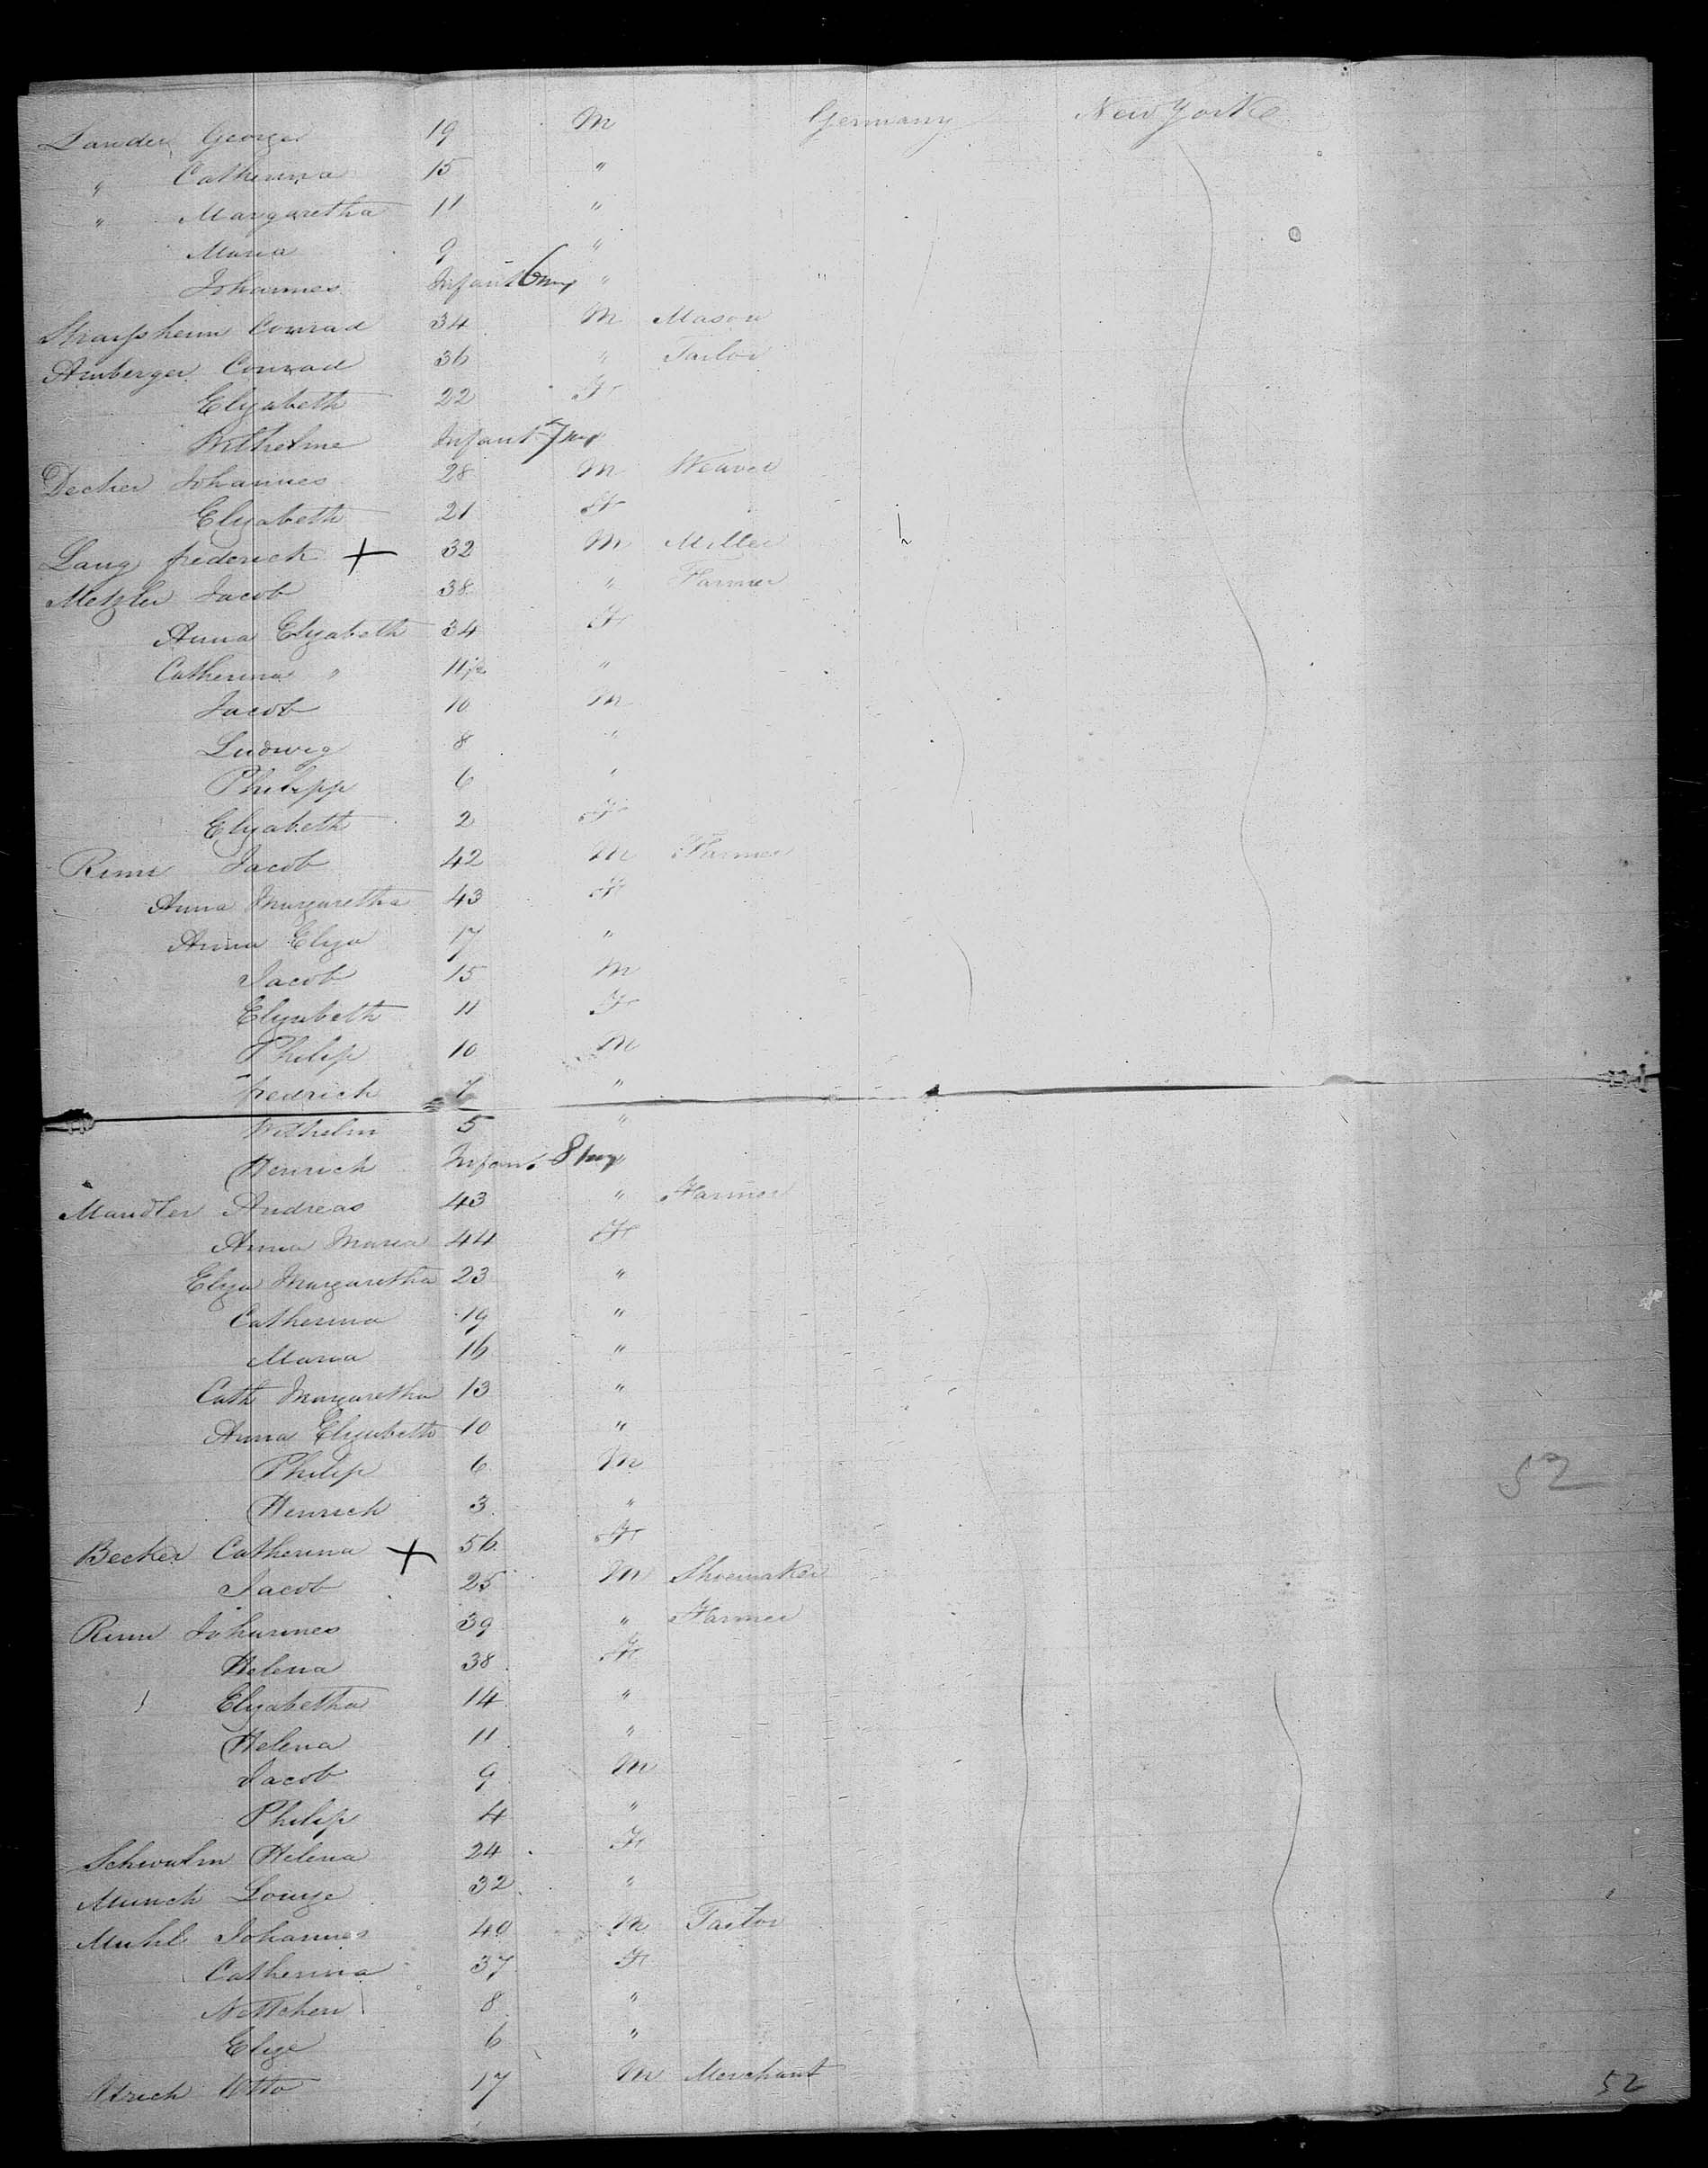 Lauder George 19 M Germany New Yorke
" Catherina 15 "
" Margaretha 11 "
Maria 9 "
Johannes Infant 6 mos " "
Straussheim Conrad 34 M Mason
Amberger Conrad 36 " Tailor
Elizabeth 22 F
Wilhelme Infant 7 mos
Decker Johannes 28 M Weaver
Elizabeth 21 F
Lang frederick + 32 M Miller
Metzler Jacob 38 " Farmer
Anna Elizabeth 34 F
Catherina " 11 1/2 "
Jacob 10 M
Ludwig 8 "
Philipp 6 "
Elizabeth 2 F
Rimm Jacob 42 M Farmer
Anna Margaretha 43 F
Anna Eliza 17 "
Jacob 15 M
Elizabeth 11 F
Philip 10 M
fredrich 7 "
Wilhelm 5 "
Henrich Infant 8 mos "
Mandler Andreas 43 " Farmer
Anna Maria 44 F
Eliza Margaretha 23 "
Catherina 19 "
Maria 16 "
Cath Margaretha 13 "
Anna Elizabeth 10 "
Philip 6 M
52
Henrich 3 "
Becker Catherina + 56 F
Jacob 25 M Shoemaker
Rimm Johannes 39 " Farmer
Helena 38 F
Elizabetha 14 "
Helena 11 "
Jacob 9 M
Philip 4 "
Schwalm Helena 24 F
Munch Louise 32 "
Muhl Johannes 40 M Tailor
Catherina 37 F
Nettchen 8 "
Elize 6 "
Otto 17 M Merchant
52